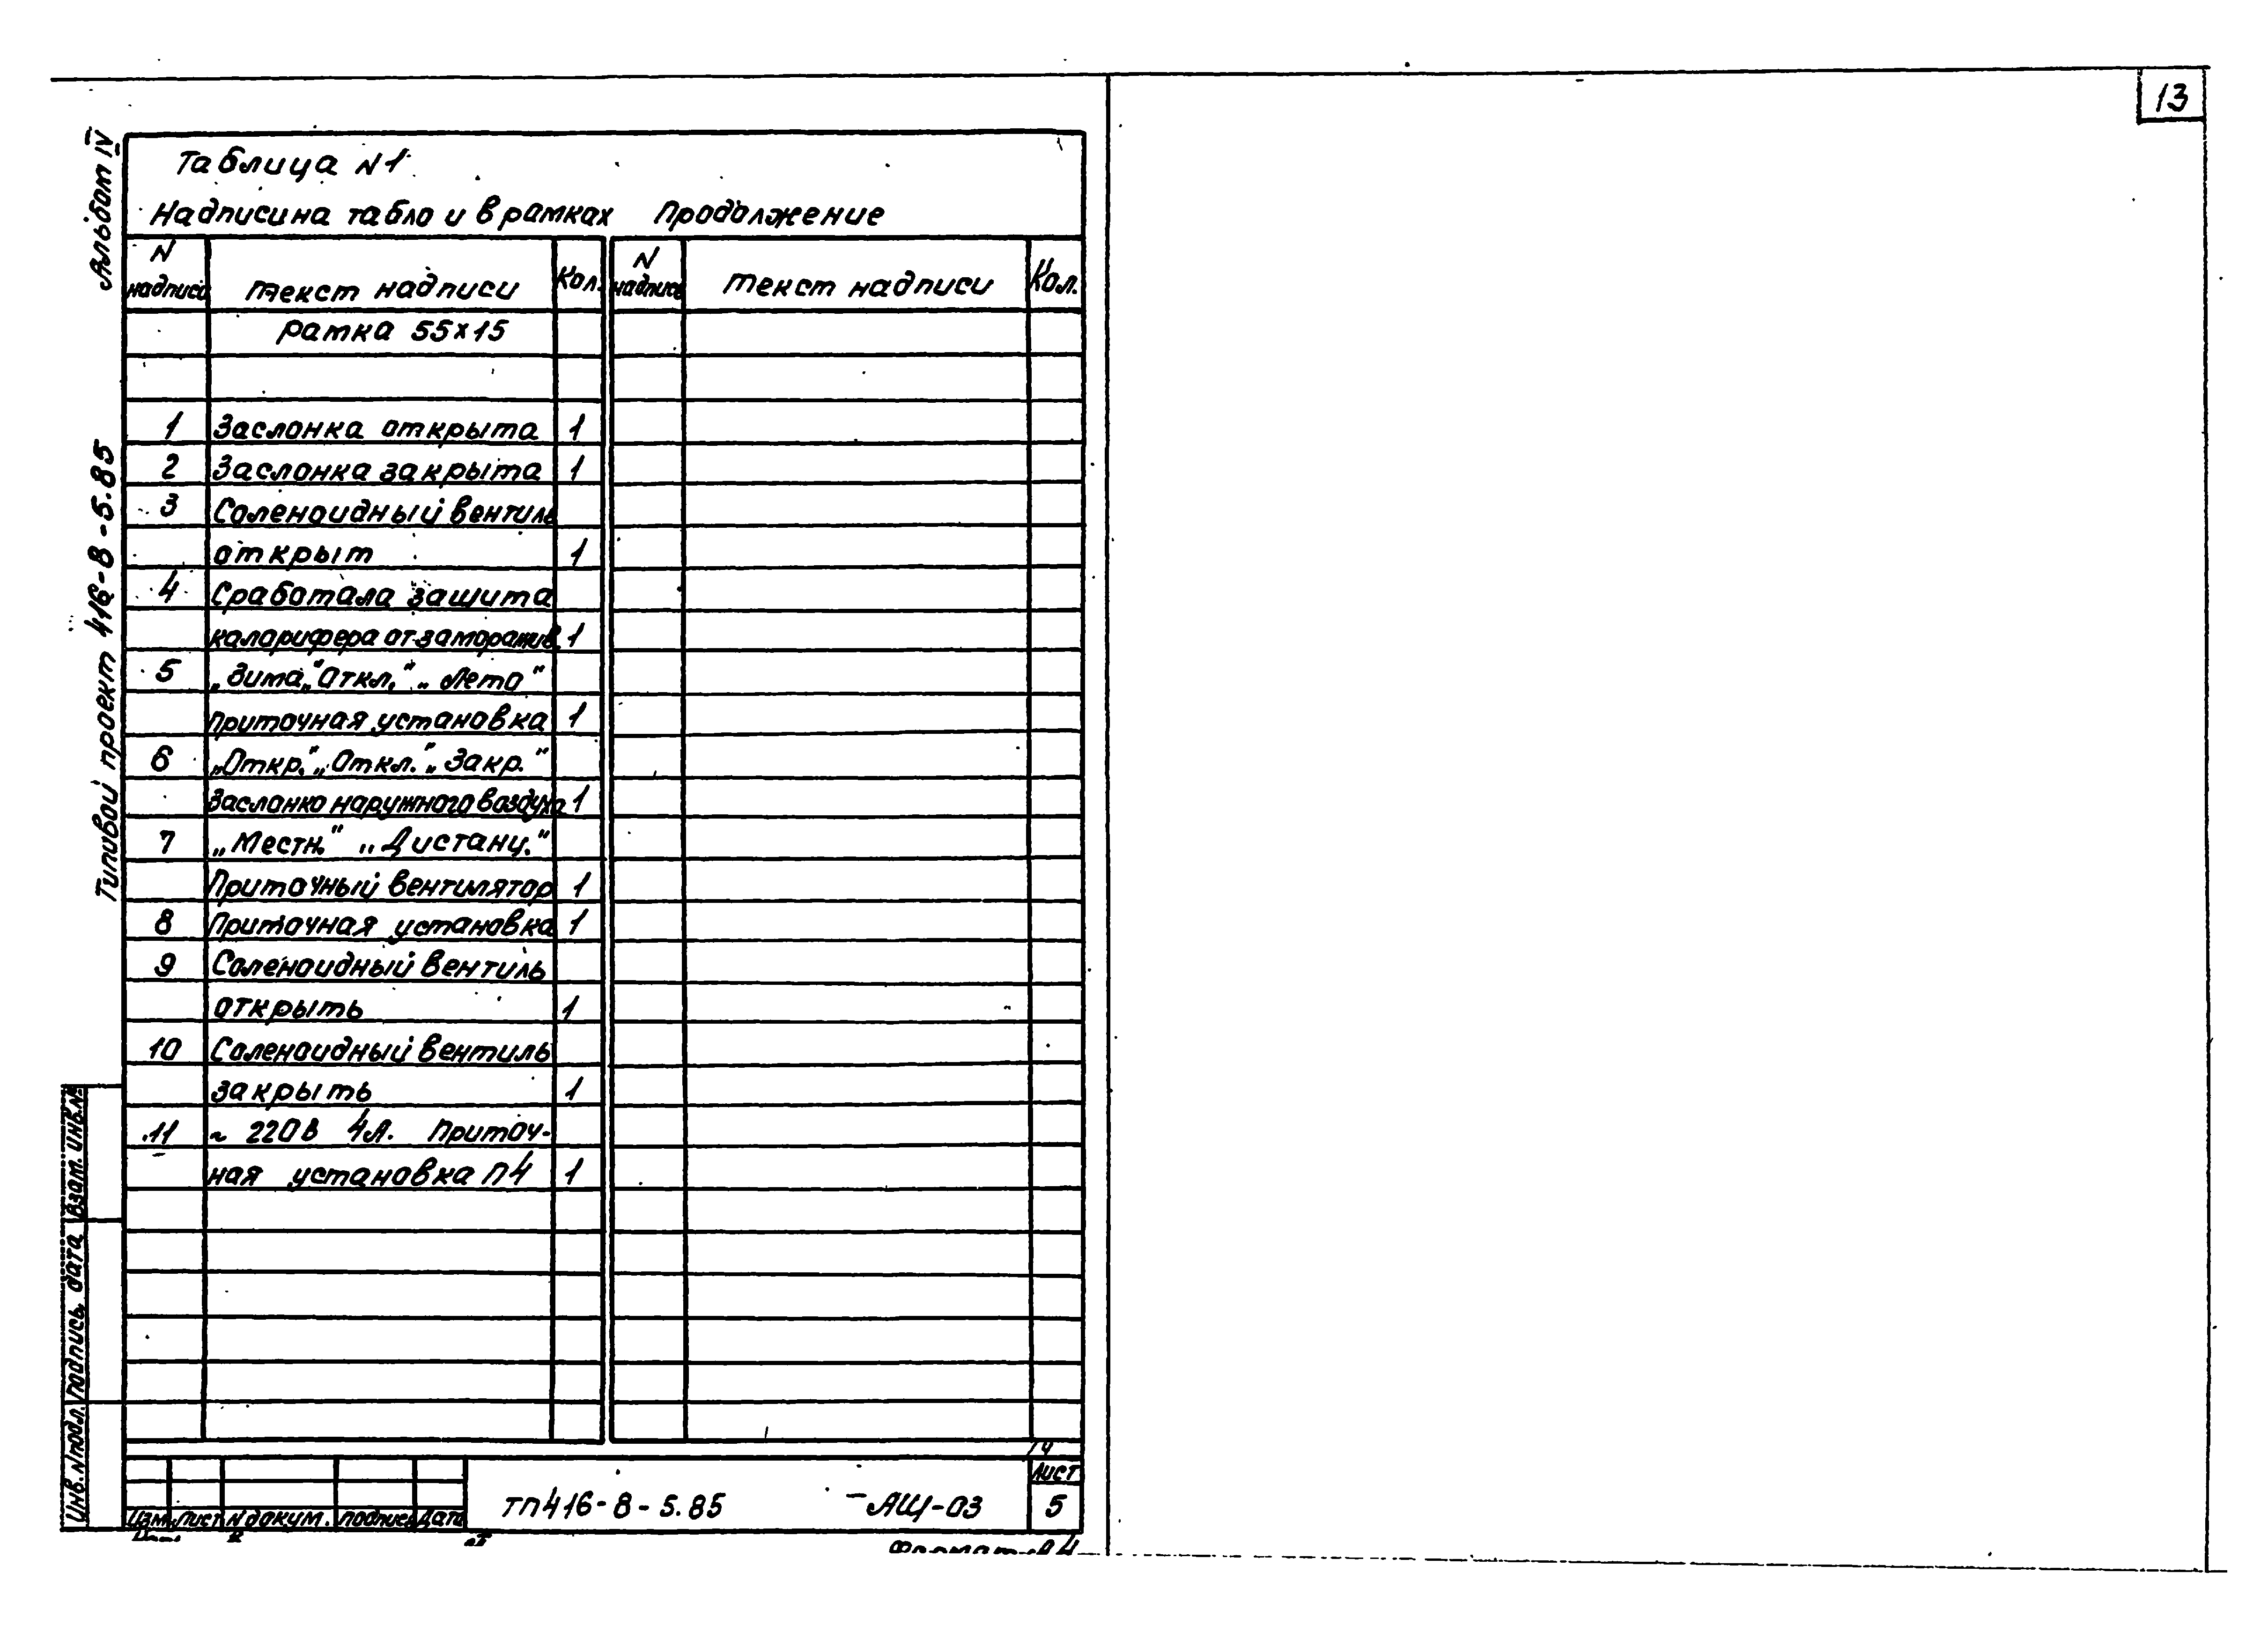 13
Альбом IV
Типовой проект 416-8-5.85
Таблица N1
Надписи на табло и в рамках Продолжение
N надписи Текст надписи Кол. N надписи Текст надписи Кол.
рамка 55х15
1 Заслонка открыта 1
2 Заслонка закрыта 1
3 Соленоидный вентиль
открыт 1
4 Сработала защита
калорифера от заморажив. 1
5 „Зима" „Откл." „Лето"
приточная установка 1
6 „Откр." „Откл." „Закр."
Заслонка наружного воздуха 1
7 „Местн." „Дистанц."
Приточный вентилятор 1
8 Приточная установка 1
9 Соленоидный вентиль
открыть 1
10 Соленоидный вентиль
закрыть 1
11 ~ 220В 4А. Приточ-
ная установка П4 1
Взам. инв. N
Подпись, дата
Инв. N подл.
14
Изм. Лист N докум. подпись Дата
ТП416-8-5.85 -АЩ-03
Лист
5
Формат А4